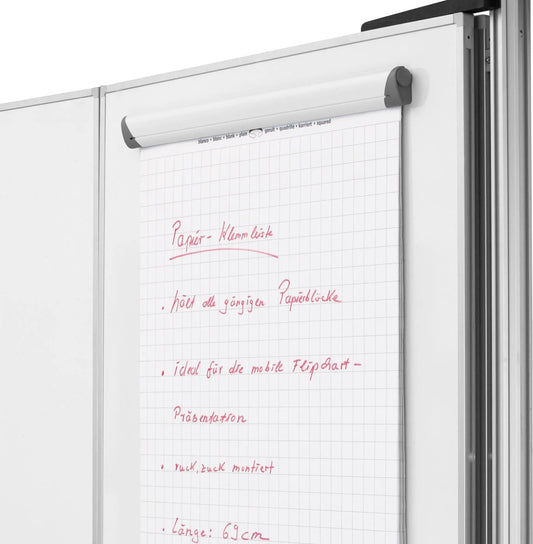 blanco • blanc • blank • plain geruit • quadrillé • kariert • squared
Papier-Klemmleiste
• hält alle gängigen Papierblöcke
• ideal für die mobile Flipchart-
Präsentation
• ruck, zuck montiert
• Länge: 69cm